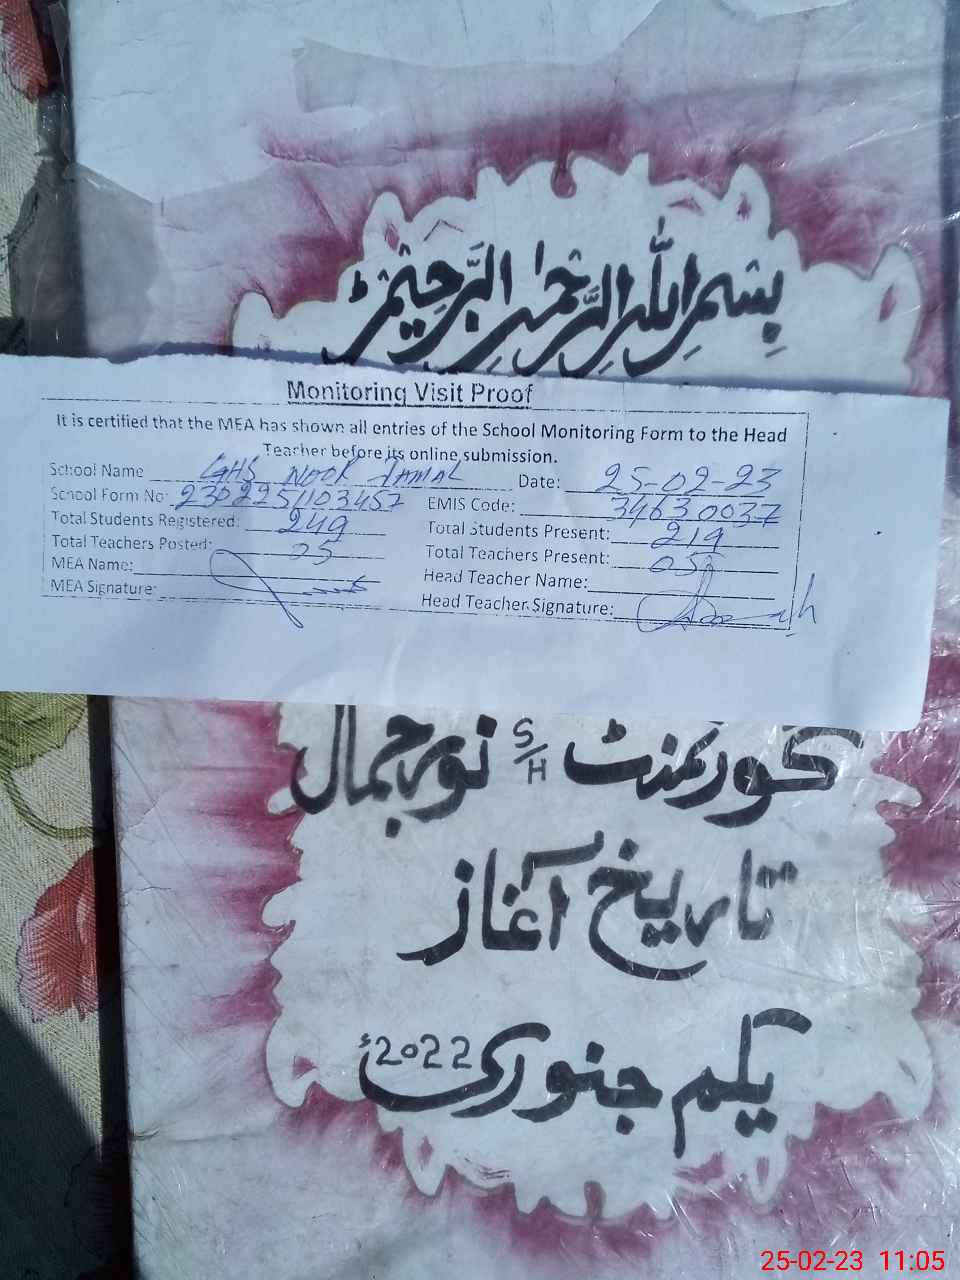 بِسْمِ اللهِ الرَّحْمٰنِ الرَّحِيْمِ
Monitoring Visit Proof
It is certified that the MEA has shown all entries of the School Monitoring Form to the Head
Teacher before its online submission.
School Name GHS NOOR JAMAL Date: 25-02-23
School Form No: 2302251103457 EMIS Code: 34630037
Total Students Registered: 249 Total Students Present: 219
Total Teachers Posted: 05 Total Teachers Present: 05
MEA Name: Head Teacher Name:
MEA Signature: Head Teacher Signature:
گورنمنٹ S/H نورجمال
تاریخ آغاز
یکم جنوری 2022ء
25-02-23 11:05